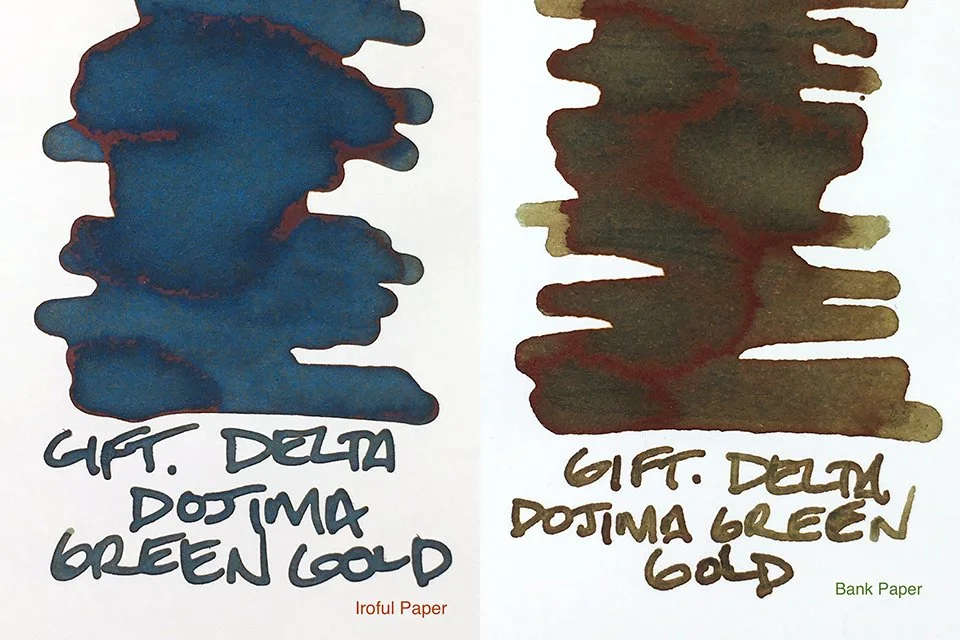 GIFT. DELTA
DOJIMA
GREEN GOLD
Iroful Paper
GIFT. DELTA
DOJIMA GREEN
GOLD
Bank Paper